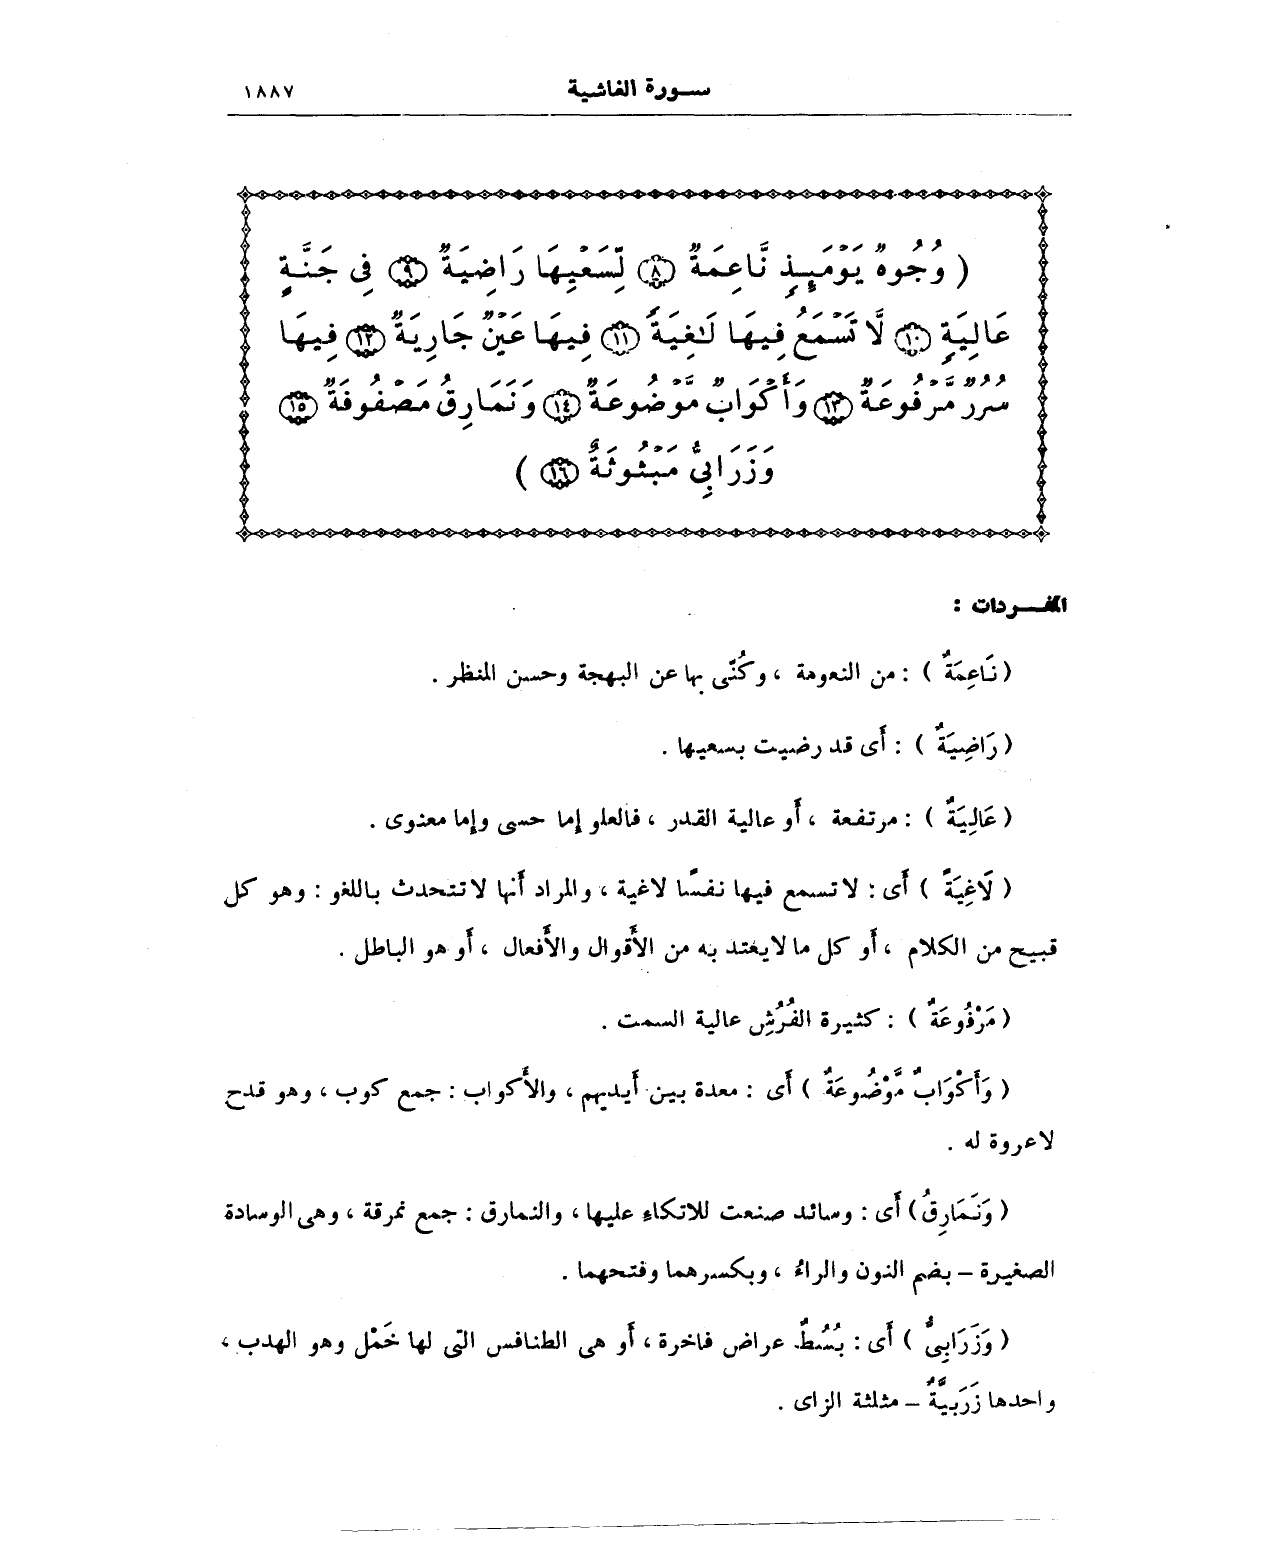 سورة الغاشية ١٨٨٧
( وُجُوهٌ يَوْمَئِذٍ نَّاعِمَةٌ ٨ لِّسَعْيِهَا رَاضِيَةٌ ٩ فِى جَنَّةٍ
عَالِيَةٍ ١٠ لَّا تَسْمَعُ فِيهَا لَٰغِيَةً ١١ فِيهَا عَيْنٌ جَارِيَةٌ ١٢ فِيهَا
سُرُرٌ مَّرْفُوعَةٌ ١٣ وَأَكْوَابٌ مَّوْضُوعَةٌ ١٤ وَنَمَارِقُ مَصْفُوفَةٌ ١٥
وَزَرَابِىُّ مَبْثُوثَةٌ ١٦ )
المفردات :
( نَاعِمَةٌ ) : من النعومة ، وكُنِّى بها عن البهجة وحسن المنظر .
( رَاضِيَةٌ ) : أَى قد رضيت بسعيها .
( عَالِيَةٌ ) : مرتفعة ، أَو عالية القدر ، فالعلو إِما حسى وإِما معنوى .
( لَاغِيَةً ) أَى : لا تسمع فيها نفسًا لاغية ، والمراد أَنها لا تتحدث باللغو : وهو كل
قبيح من الكلام ، أَو كل ما لا يعتد به من الأَقوال والأَفعال ، أَو هو الباطل .
( مَرْفُوعَةٌ ) : كثيرة الفُرُشِ عالية السمت .
( وَأَكْوَابٌ مَّوْضُوعَةٌ ) أَى : معدة بين أَيديهم ، والأَكواب : جمع كوب ، وهو قدح
لا عروة له .
( وَنَمَارِقُ ) أَى : وسائد صنعت للاتكاءِ عليها ، والنمارق : جمع نمرقة ، وهى الوسادة
الصغيرة – بضم النون والراءُ ، وبكسرهما وفتحهما .
( وَزَرَابِىُّ ) أَى : بُسُطٌ عراض فاخرة ، أَو هى الطنافس التى لها خَمْل وهو الهدب ،
واحدها زَرَبِيَّةٌ – مثلثة الزاى .